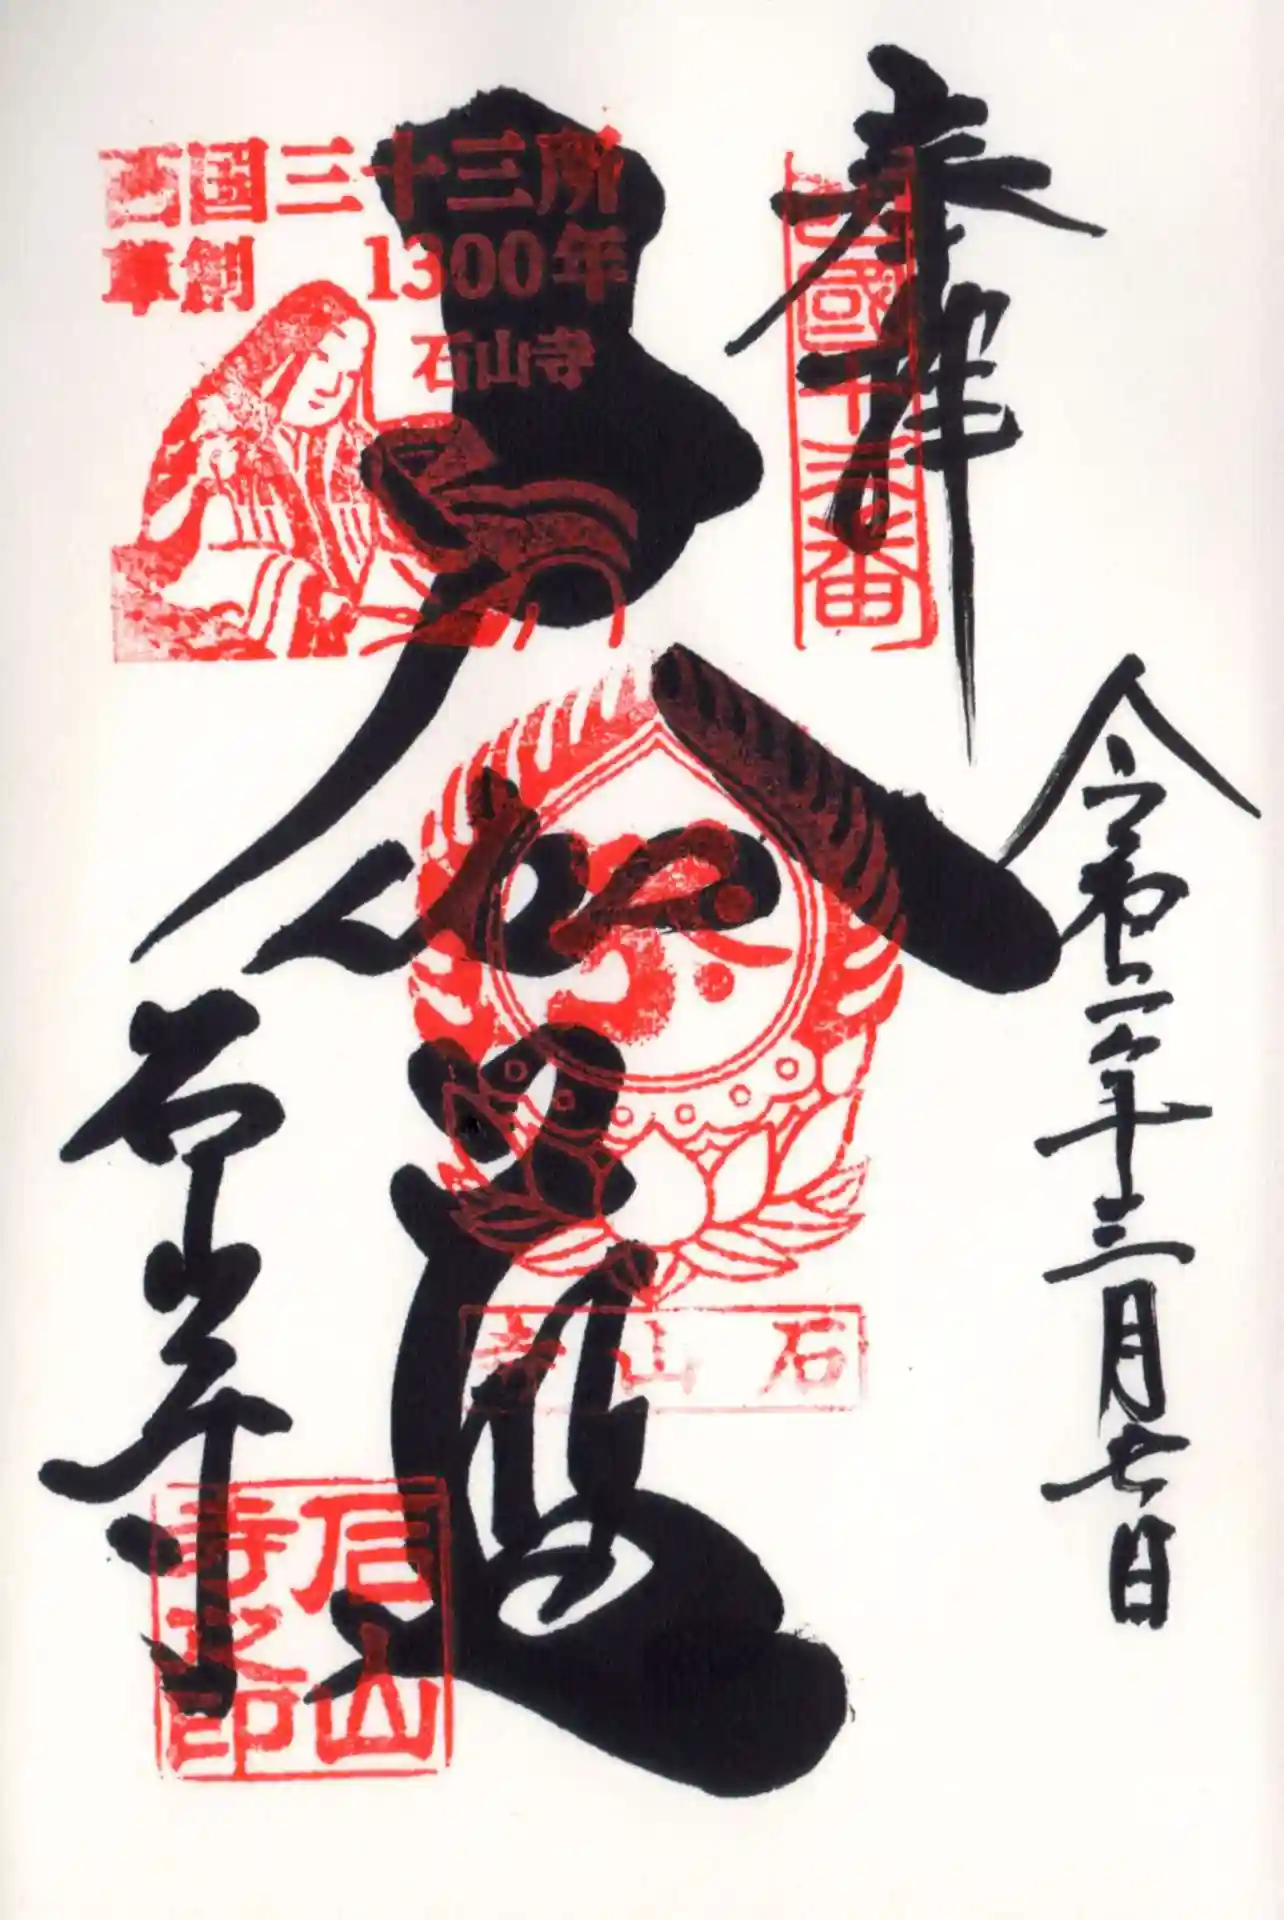 奉拝
西國十三番
令和二年十二月七日
西国三十三所
草創 1300年
石山寺
大伽藍
石山寺
石山寺
石山寺之印